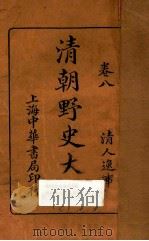 卷八
清人逸
清朝野史大
上海中華書局印